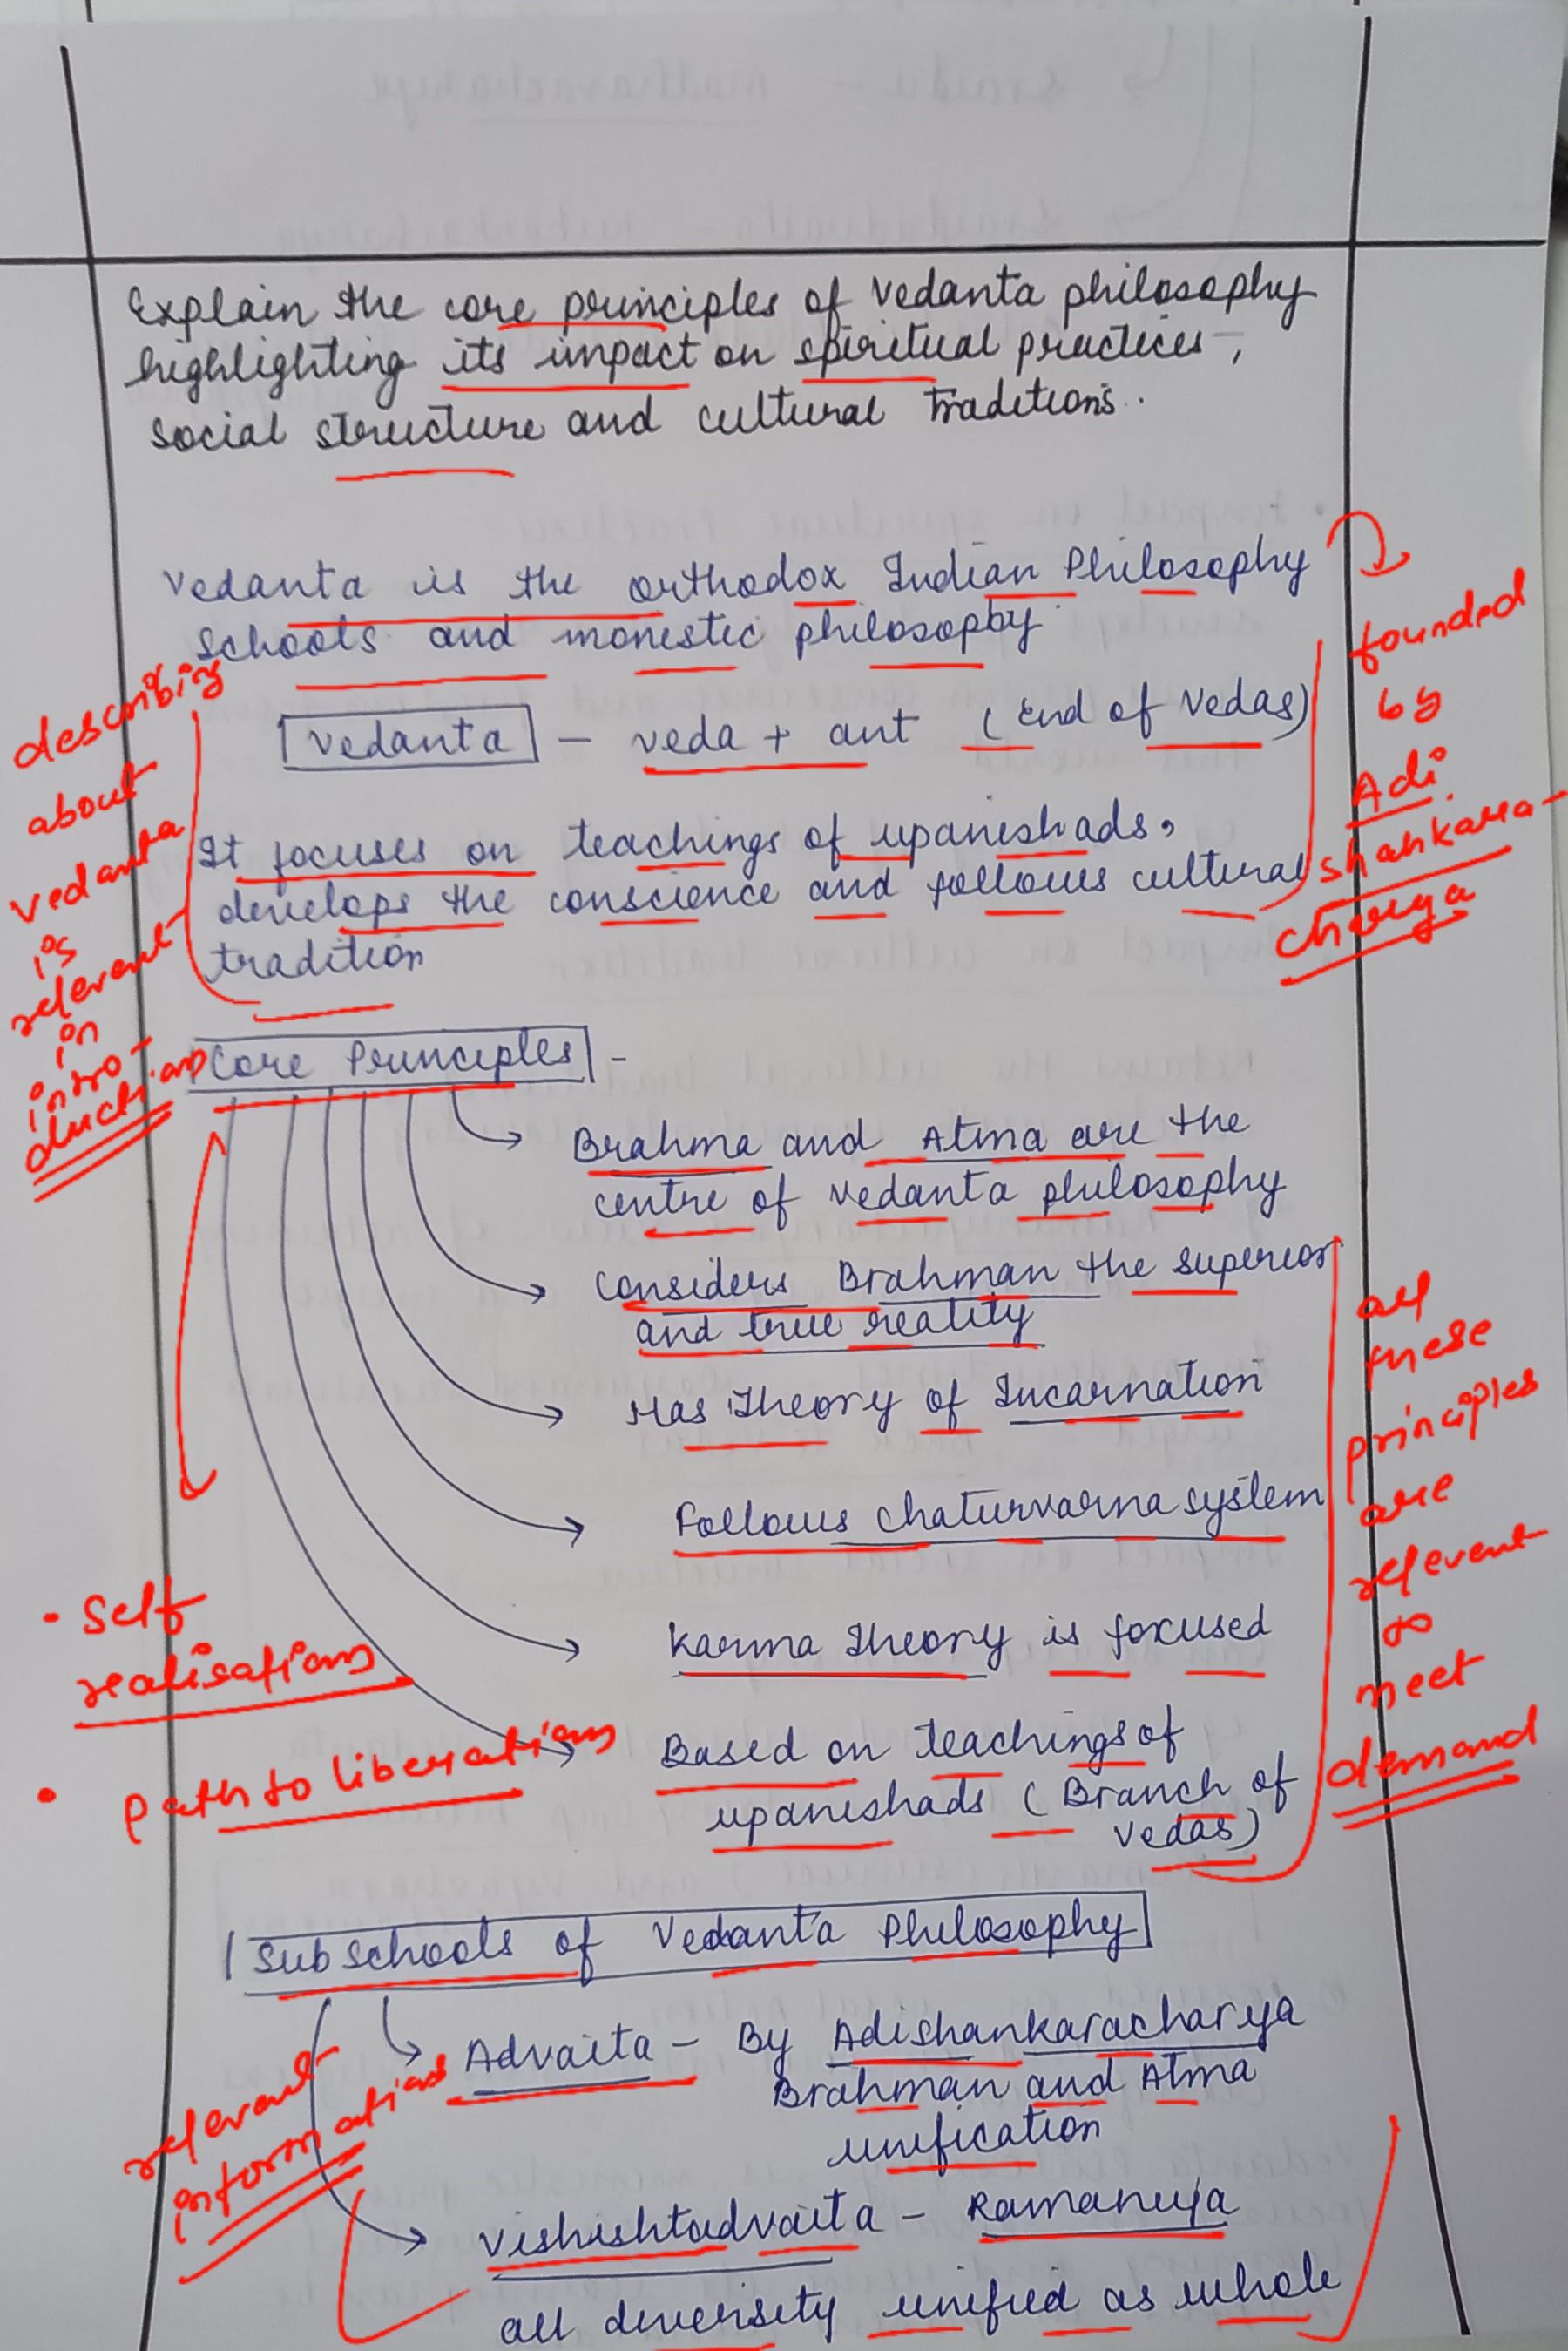 Explain the core principles of Vedanta philosophy
highlighting its impact on spiritual practices,
social structure and cultural traditions.
Vedanta is the orthodox Indian Philosophy
schools and monestic philosophy
Vedanta - veda + ant (End of Vedas)
It focuses on teachings of upanishads,
develops the conscience and follows cultural
tradition
describing
about
vedanta
is
relevant
in
intro-
duction
founded
by
Adi
shankara-
charya
Core Principles -
Brahma and Atma are the
centre of Vedanta philosophy
Considers Brahman the superior
and true reality
Has Theory of Incarnation
Follows chaturvarna system
Karma theory is focused
Based on teachings of
upanishads (Branch of
Vedas)
• Self
realisations
• path to liberations
all
these
principles
are
relevent
to
meet
demand
Subschools of Vedanta Philosophy
Advaita - By Adishankaracharya
Brahman and Atma
unification
Vishishtadvaita - Ramanuja
all diversity unified as whole
relevant
informations